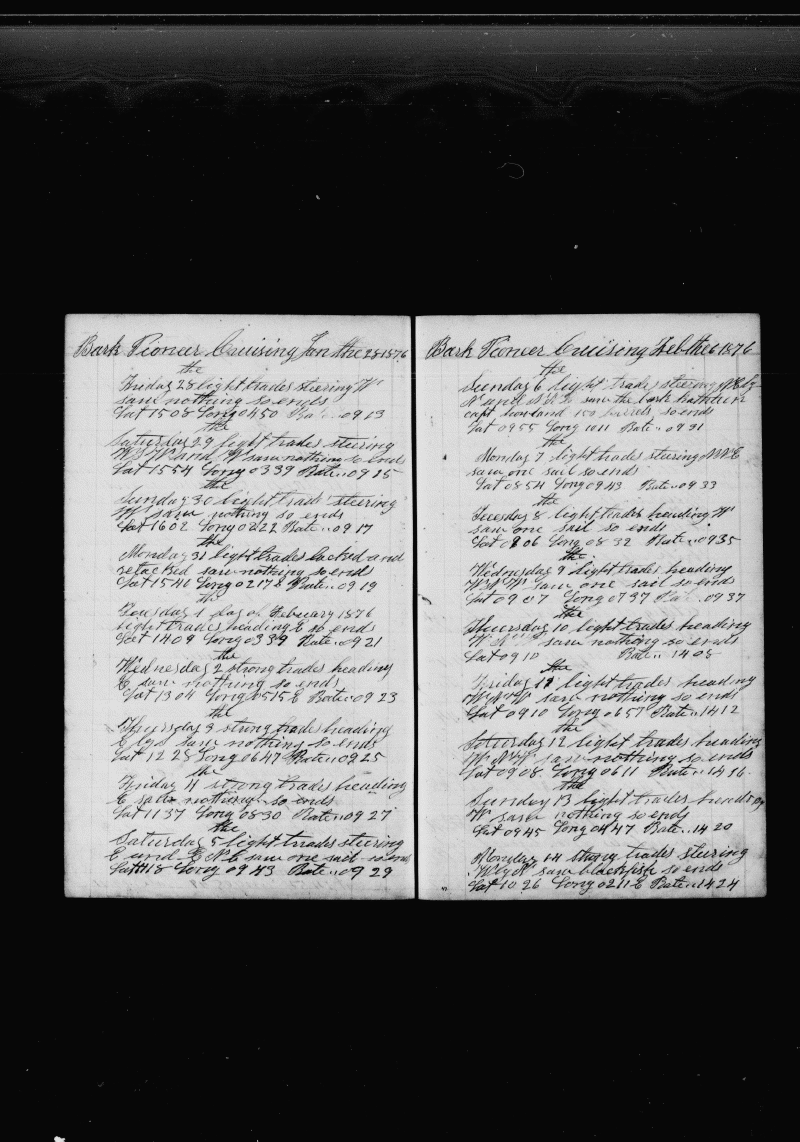 Bark Pioneer Cruising Jan the 28 1876
the
Friday 28 light trades steering W
saw nothing so ends
Lat 15 08 Long 04 50 Rate .. 09 13
the
Saturday 29 light trades steering
W and saw nothing so ends
Lat 15 54 Long 03 39 Rate .. 09 15
the
Sunday 30 light trads steering
W saw nothing so ends
Lat 16 02 Long 02 22 Rate .. 09 17
the
Monday 31 light trades tacked and
retacked saw nothing so ends
Lat 15 40 Long 02 17 E Rate .. 09 19
the
Tuesday 1 day of February 1876
light trades heading E so ends
Lat 14 09 Long 03 39 Rate .. 09 21
the
Wednesday 2 strong trades heading
E saw nothing so ends
Lat 13 04 Long 05 15 E Rate .. 09 23
the
Thursday 3 strong trades heading
E by S saw nothing so ends
Lat 12 25 Long 06 47 Rate .. 09 25
the
Friday 4 strong trades heading
E saw nothing so ends
Lat 11 37 Long 08 30 Rate .. 09 27
the
Saturday 5 light trades steering
E and E N E saw one sail so ends
Lat 11 18 Long 09 43 Rate .. 09 29
Bark Pioneer Cruising Feb the 6 1876
the
Sunday 6 light trades steering
N and saw the bark
capt howland 150 barrels so ends
Lat 09 55 Long 10 11 Rate .. 09 31
the
Monday 7 light trades steering
saw one sail so ends
Lat 08 54 Long 09 43 Rate .. 09 33
the
Tuesday 8 light trades heading W
saw one sail so ends
Lat 08 06 Long 08 32 Rate .. 09 35
the
Wednesday 9 light trades heading
saw one sail so ends
Lat 09 07 Long 07 37 Rate .. 09 37
the
Thursday 10 light trades heading
saw nothing so ends
Lat 09 10 Rate .. 14 08
the
Friday 11 light trades heading
W N W saw nothing so ends
Lat 09 10 Long 06 57 Rate .. 14 12
the
Saturday 12 light trades heading
W N W saw nothing so ends
Lat 09 08 Long 06 11 Rate .. 14 16
the
Sunday 13 light trades heading
W saw nothing so ends
Lat 09 45 Long 04 47 Rate .. 14 20
Monday 14 strong trades steering
saw blackfish so ends
Lat 10 26 Long 02 11 E Rate .. 14 24